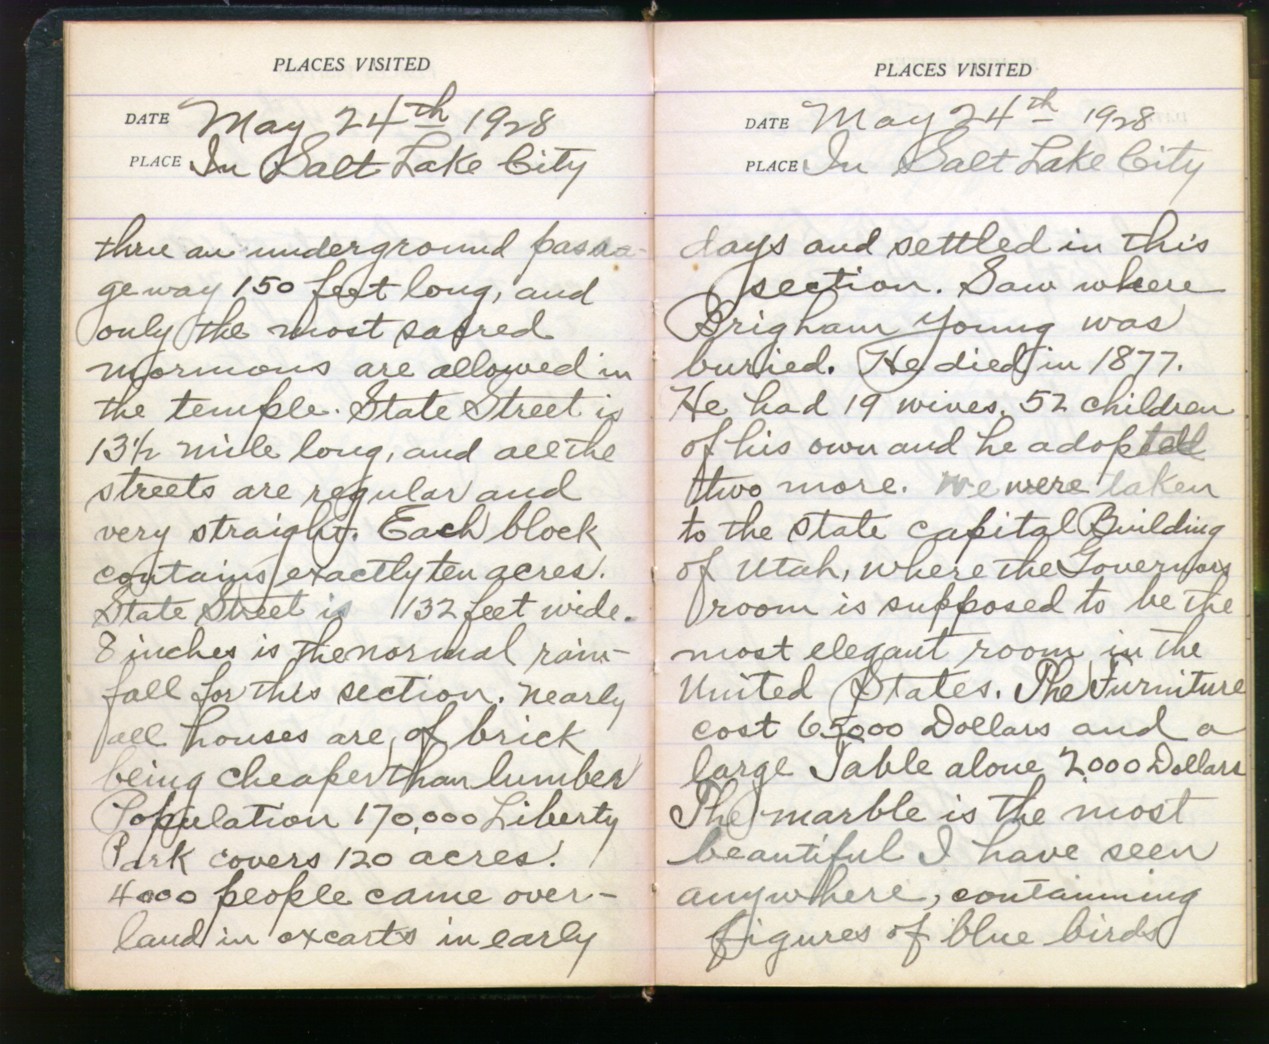 PLACES VISITED
DATE May 24th 1928
PLACE In Salt Lake City
thru an underground passa-
ge way 150 feet long, and
only the most sacred
mormons are allowed in
the temple. State Street is
13½ mile long, and all the
streets are regular and
very straight. Each block
contains exactly ten acres.
State Street is 132 feet wide.
8 inches is the normal rain-
fall for this section. nearly
all houses are of brick
being cheaper than lumber
Population 170,000 Liberty
Park covers 120 acres.
4000 people came over-
land in oxcarts in early
PLACES VISITED
DATE May 24th 1928
PLACE In Salt Lake City
days and settled in this
section. Saw where
Brigham Young was
buried. He died in 1877.
He had 19 wives, 52 children
of his own and he adopted
two more. We were taken
to the state capital Building
of Utah, where the Governors
room is supposed to be the
most elegant room in the
United States. The Furniture
cost 65,000 Dollars and a
large Table alone 2000 Dollars
The marble is the most
beautiful I have seen
anywhere, containning
figures of blue birds